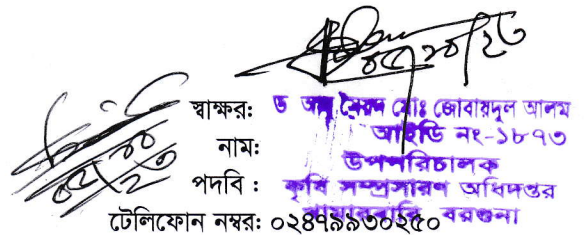 স্বাক্ষর: ড আবু সৈয়দ মোঃ জোবায়দুল আলম
নাম: আইডি নং-১৮৭৩
উপপরিচালক
পদবি : কৃষি সম্প্রসারণ অধিদপ্তর
খামারবাড়ি বরগুনা
টেলিফোন নম্বর: ০২৪৭৯৯৩০২৫০